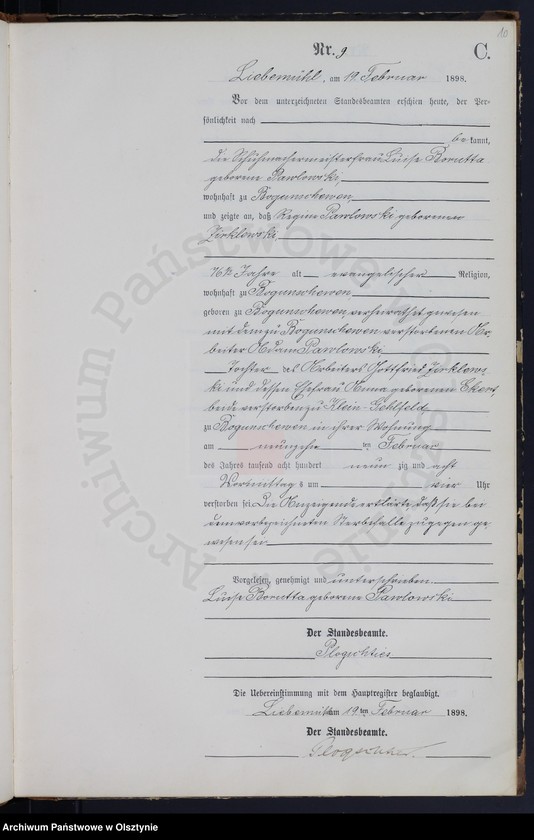 10
Nr. 9 C.
Liebemühl, am 19. Februar 1898.
Vor dem unterzeichneten Standesbeamten erschien heute, der Per-
sönlichkeit nach
be kannt,
die Schuhmachermeisterfrau Luise Borutta
geborene Pawlowski,
wohnhaft zu Bogunschöwen
und zeigte an, daß Regine Pawlowski geborenen
Zirklewski
76½ Jahre alt evangelischer Religion,
wohnhaft zu Bogunschöwen
geboren zu Bogunschöwen verheirathet gewesen
mit dem zu Bogunschöwen verstorbenen Ar-
beiter Adam Pawlowski
Tochter des Arbeiters Gottfried Zirklews-
ki und dessen Ehefrau Anna geborenen
beide verstorben zu Klein Gehlfeld
zu Bogunschöwen in ihrer Wohnung
am neunzehn ten Februar
des Jahres tausend acht hundert neun zig und acht
Vormittag s um vier Uhr
verstorben sei. Die Anzeigende erklärte, daß sie bei
dem vorbezeichneten Sterbefalle zugegen ge-
wesen sei
Vorgelesen, genehmigt und unterschrieben
Luise Borutta geborene Pawlowski
Der Standesbeamte.
Die Uebereinstimmung mit dem Hauptregister beglaubigt.
Liebemühl am 19 ten Februar 1898.
Der Standesbeamte.
Archiwum Państwowe w Olsztynie
Archiwum Państwowe w Olsztynie